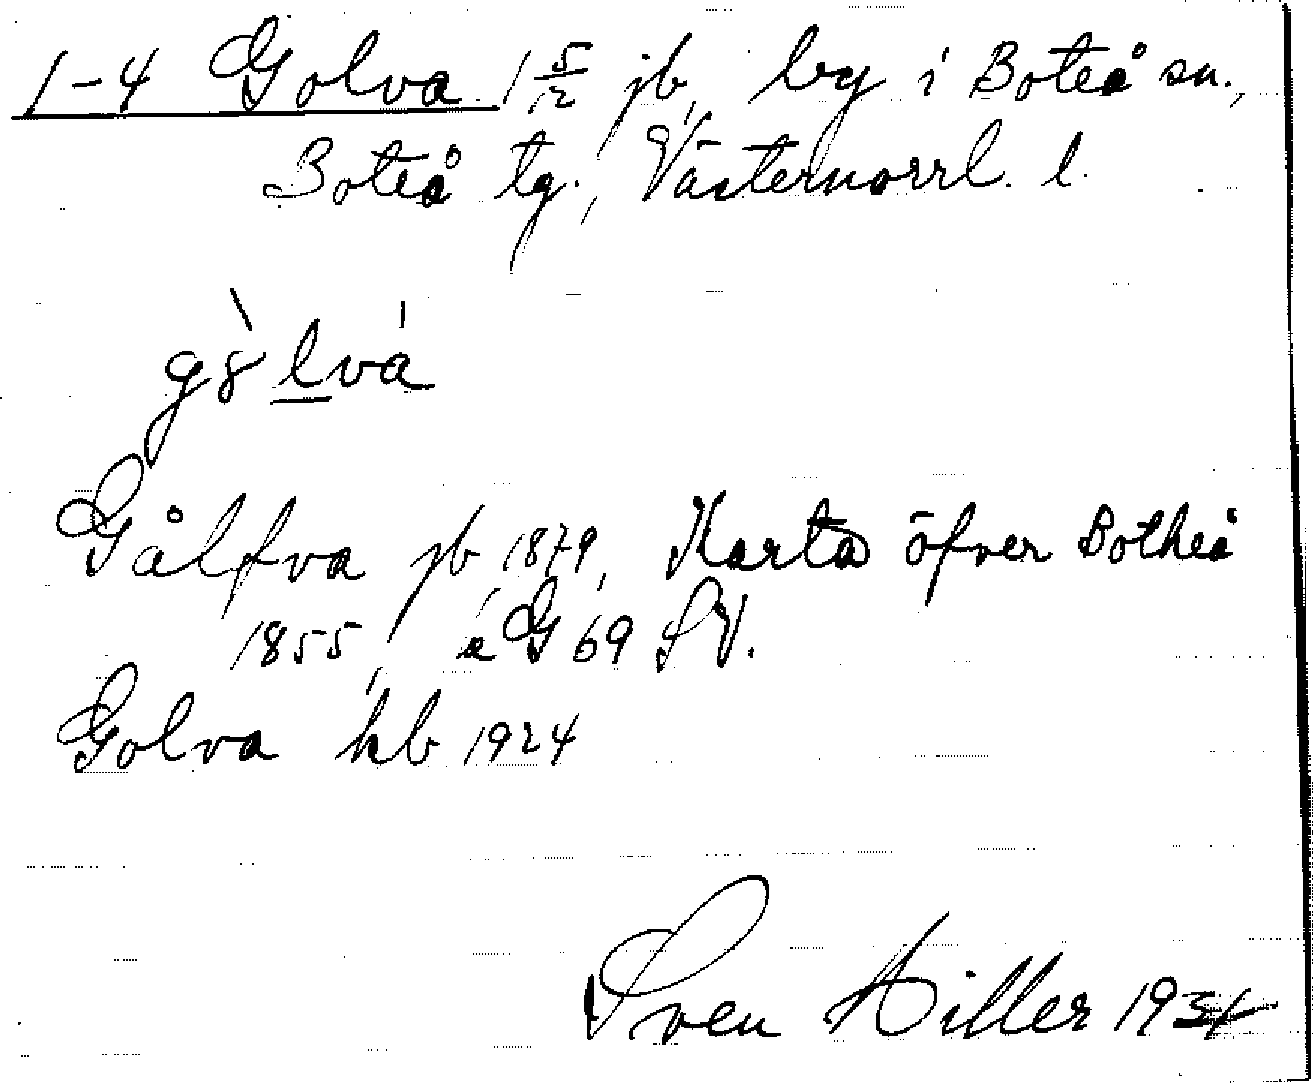 1-4 Golva 1 5/12 jb, by i Boteå sn.,
Boteå tg., Västernorrl. l.
gȣ̀lvá
Gålfva jb 1879, Karta öfver Botheå
1855, å G 69 SV.
Golva hb 1924
Sven Hiller